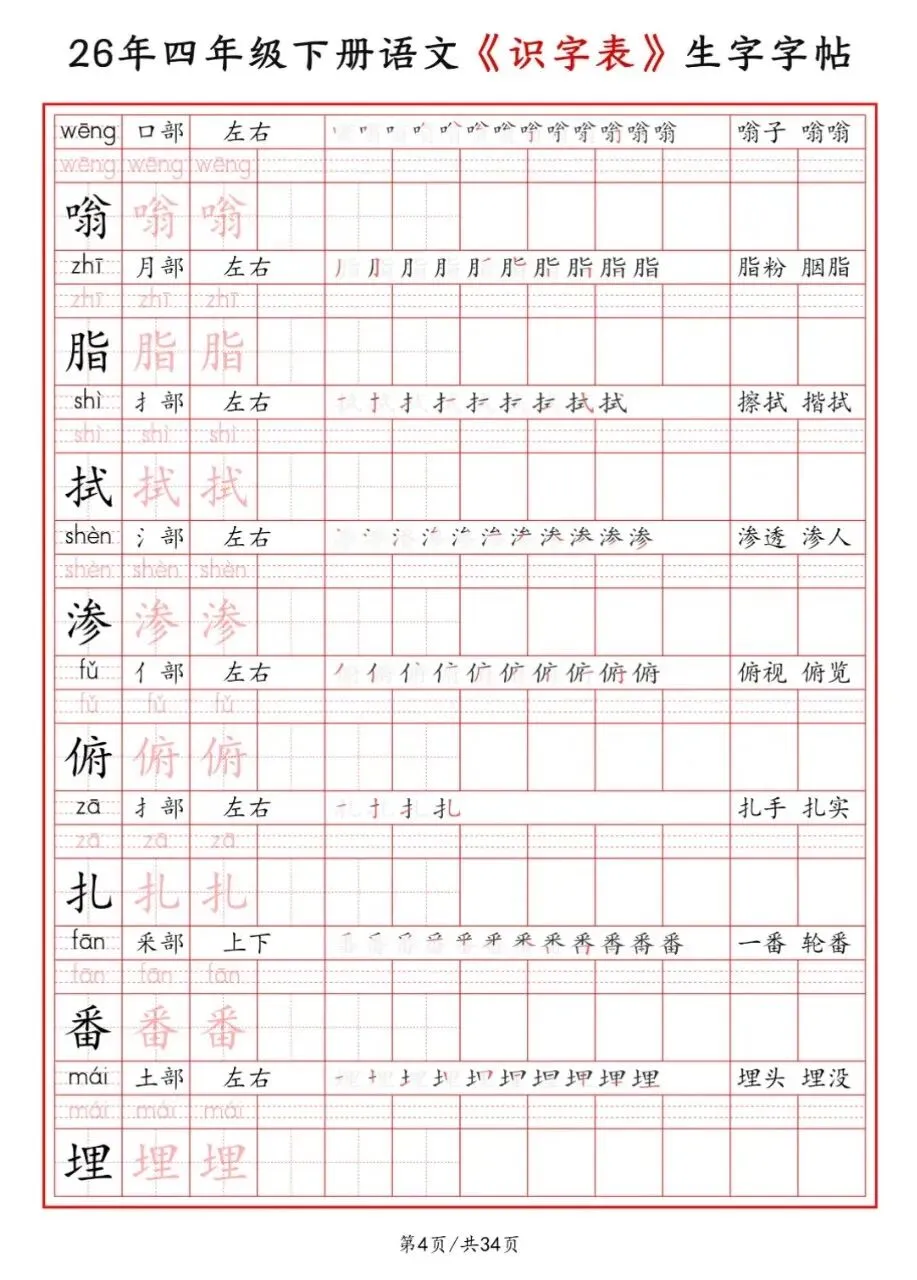 26年四年级下册语文《识字表》生字字帖
wēng 口部 左右 嗡子 嗡嗡
wēng wēng wēng
嗡 嗡 嗡
zhī 月部 左右 脂粉 胭脂
zhī zhī zhī
脂 脂 脂
shì 扌部 左右 擦拭 揩拭
shì shì shì
拭 拭 拭
shèn 氵部 左右 渗透 渗人
shèn shèn shèn
渗 渗 渗
fǔ 亻部 左右 俯视 俯览
fǔ fǔ fǔ
俯 俯 俯
zā 扌部 左右 扎手 扎实
zā zā zā
扎 扎 扎
fān 釆部 上下 一番 轮番
fān fān fān
番 番 番
mái 土部 左右 埋头 埋没
mái mái mái
埋 埋 埋
第4页/共34页